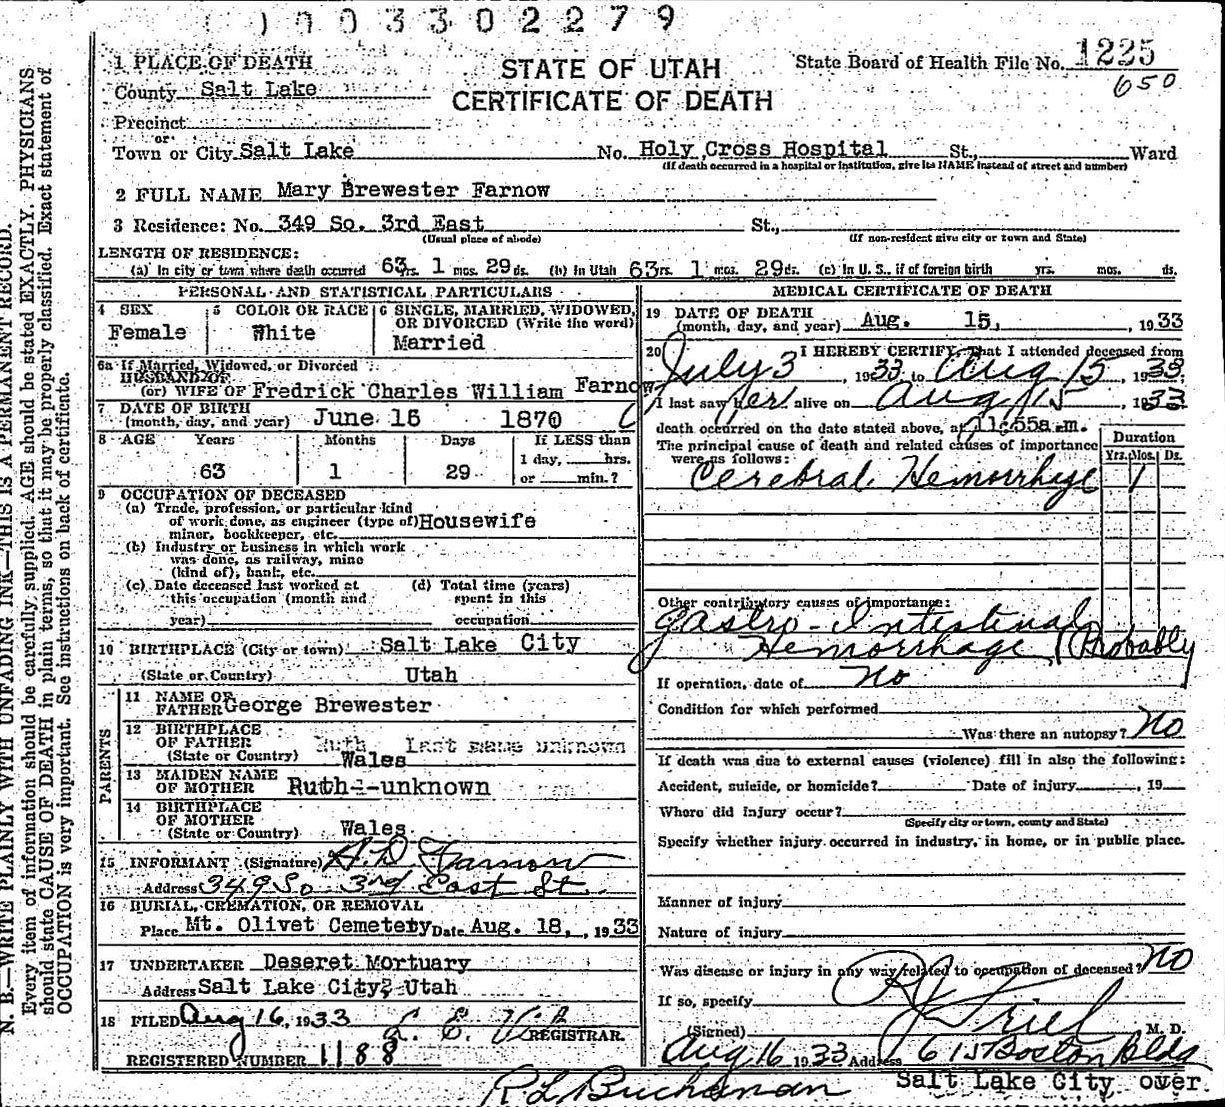 003302279
1 PLACE OF DEATH
STATE OF UTAH
State Board of Health File No. 1225
County Salt Lake
CERTIFICATE OF DEATH
650
Precinct
or
Town or City Salt Lake No. Holy Cross Hospital St., Ward
(If death occurred in a hospital or institution, give its NAME instead of street and number)
2 FULL NAME Mary Brewester Farnow
3 Residence: No. 349 So. 3rd East St.,
(Usual place of abode) (If non-resident give city or town and State)
LENGTH OF RESIDENCE:
(a) In city or town where death occurred 63 yrs. 1 mos. 29 ds. (b) In Utah 63 rs. 1 mos. 29 ds. (c) In U. S., if of foreign birth yrs. mos. ds.
PERSONAL AND STATISTICAL PARTICULARS
4 SEX
Female
5 COLOR OR RACE
White
6 SINGLE, MARRIED, WIDOWED,
OR DIVORCED (Write the word)
Married
6a If Married, Widowed, or Divorced
HUSBAND OF
(or) WIFE OF Fredrick Charles William Farnow
7 DATE OF BIRTH
(month, day, and year) June 15 1870
8 AGE Years Months Days If LESS than
1 day, hrs.
63 1 29 or min.?
9 OCCUPATION OF DECEASED
(a) Trade, profession, or particular kind
of work done, as engineer (type of) Housewife
miner, bookkeeper, etc.
(b) Industry or business in which work
was done, as railway, mine
(kind of), bank, etc.
(c) Date deceased last worked at (d) Total time (years)
this occupation (month and spent in this
year) occupation
10 BIRTHPLACE (City or town) Salt Lake City
(State or Country) Utah
PARENTS
11 NAME OF
FATHER George Brewester
12 BIRTHPLACE
OF FATHER Ruth Last name unknown
(State or Country) Wales
13 MAIDEN NAME
OF MOTHER Ruth--unknown
14 BIRTHPLACE
OF MOTHER
(State or Country) Wales
15 INFORMANT (Signature) H. D. Farnow
Address 349 So 3rd East St.
16 BURIAL, CREMATION, OR REMOVAL
Place Mt. Olivet Cemetery Date Aug. 18, , 1933
17 UNDERTAKER Deseret Mortuary
Address Salt Lake City, Utah
18 FILED Aug 16, 1933
REGISTRAR.
REGISTERED NUMBER 1188
MEDICAL CERTIFICATE OF DEATH
19 DATE OF DEATH
(month, day, and year) Aug. 15, , 1933
20 I HEREBY CERTIFY, That I attended deceased from
July 3, 1933 to Aug 15, 1933
I last saw her alive on Aug 15, 1933
death occurred on the date stated above, at 11:55a.m.
The principal cause of death and related causes of importance
were as follows:
Duration
Yrs. Mos. Ds.
Cerebral Hemorrhage 1
Other contributory causes of importance:
Gastro-Intestinal
Hemorrhage (Probably
If operation, date of No
Condition for which performed
Was there an autopsy? No
If death was due to external causes (violence) fill in also the following:
Accident, suicide, or homicide? Date of injury , 19
Where did injury occur?
(Specify city or town, county and State)
Specify whether injury occurred in industry, in home, or in public place.
Manner of injury
Nature of injury
Was disease or injury in any way related to occupation of deceased? No
If so, specify
(Signed) M. D.
Aug 16 1933 Address 615 Boston Bldg
Salt Lake City over.
R L Buchanan
N. B.—WRITE PLAINLY WITH UNFADING INK—THIS IS A PERMANENT RECORD.
Every item of information should be carefully supplied. AGE should be stated EXACTLY. PHYSICIANS
should state CAUSE OF DEATH in plain terms, so that it may be properly classified. Exact statement of
OCCUPATION is very important. See instructions on back of certificate.